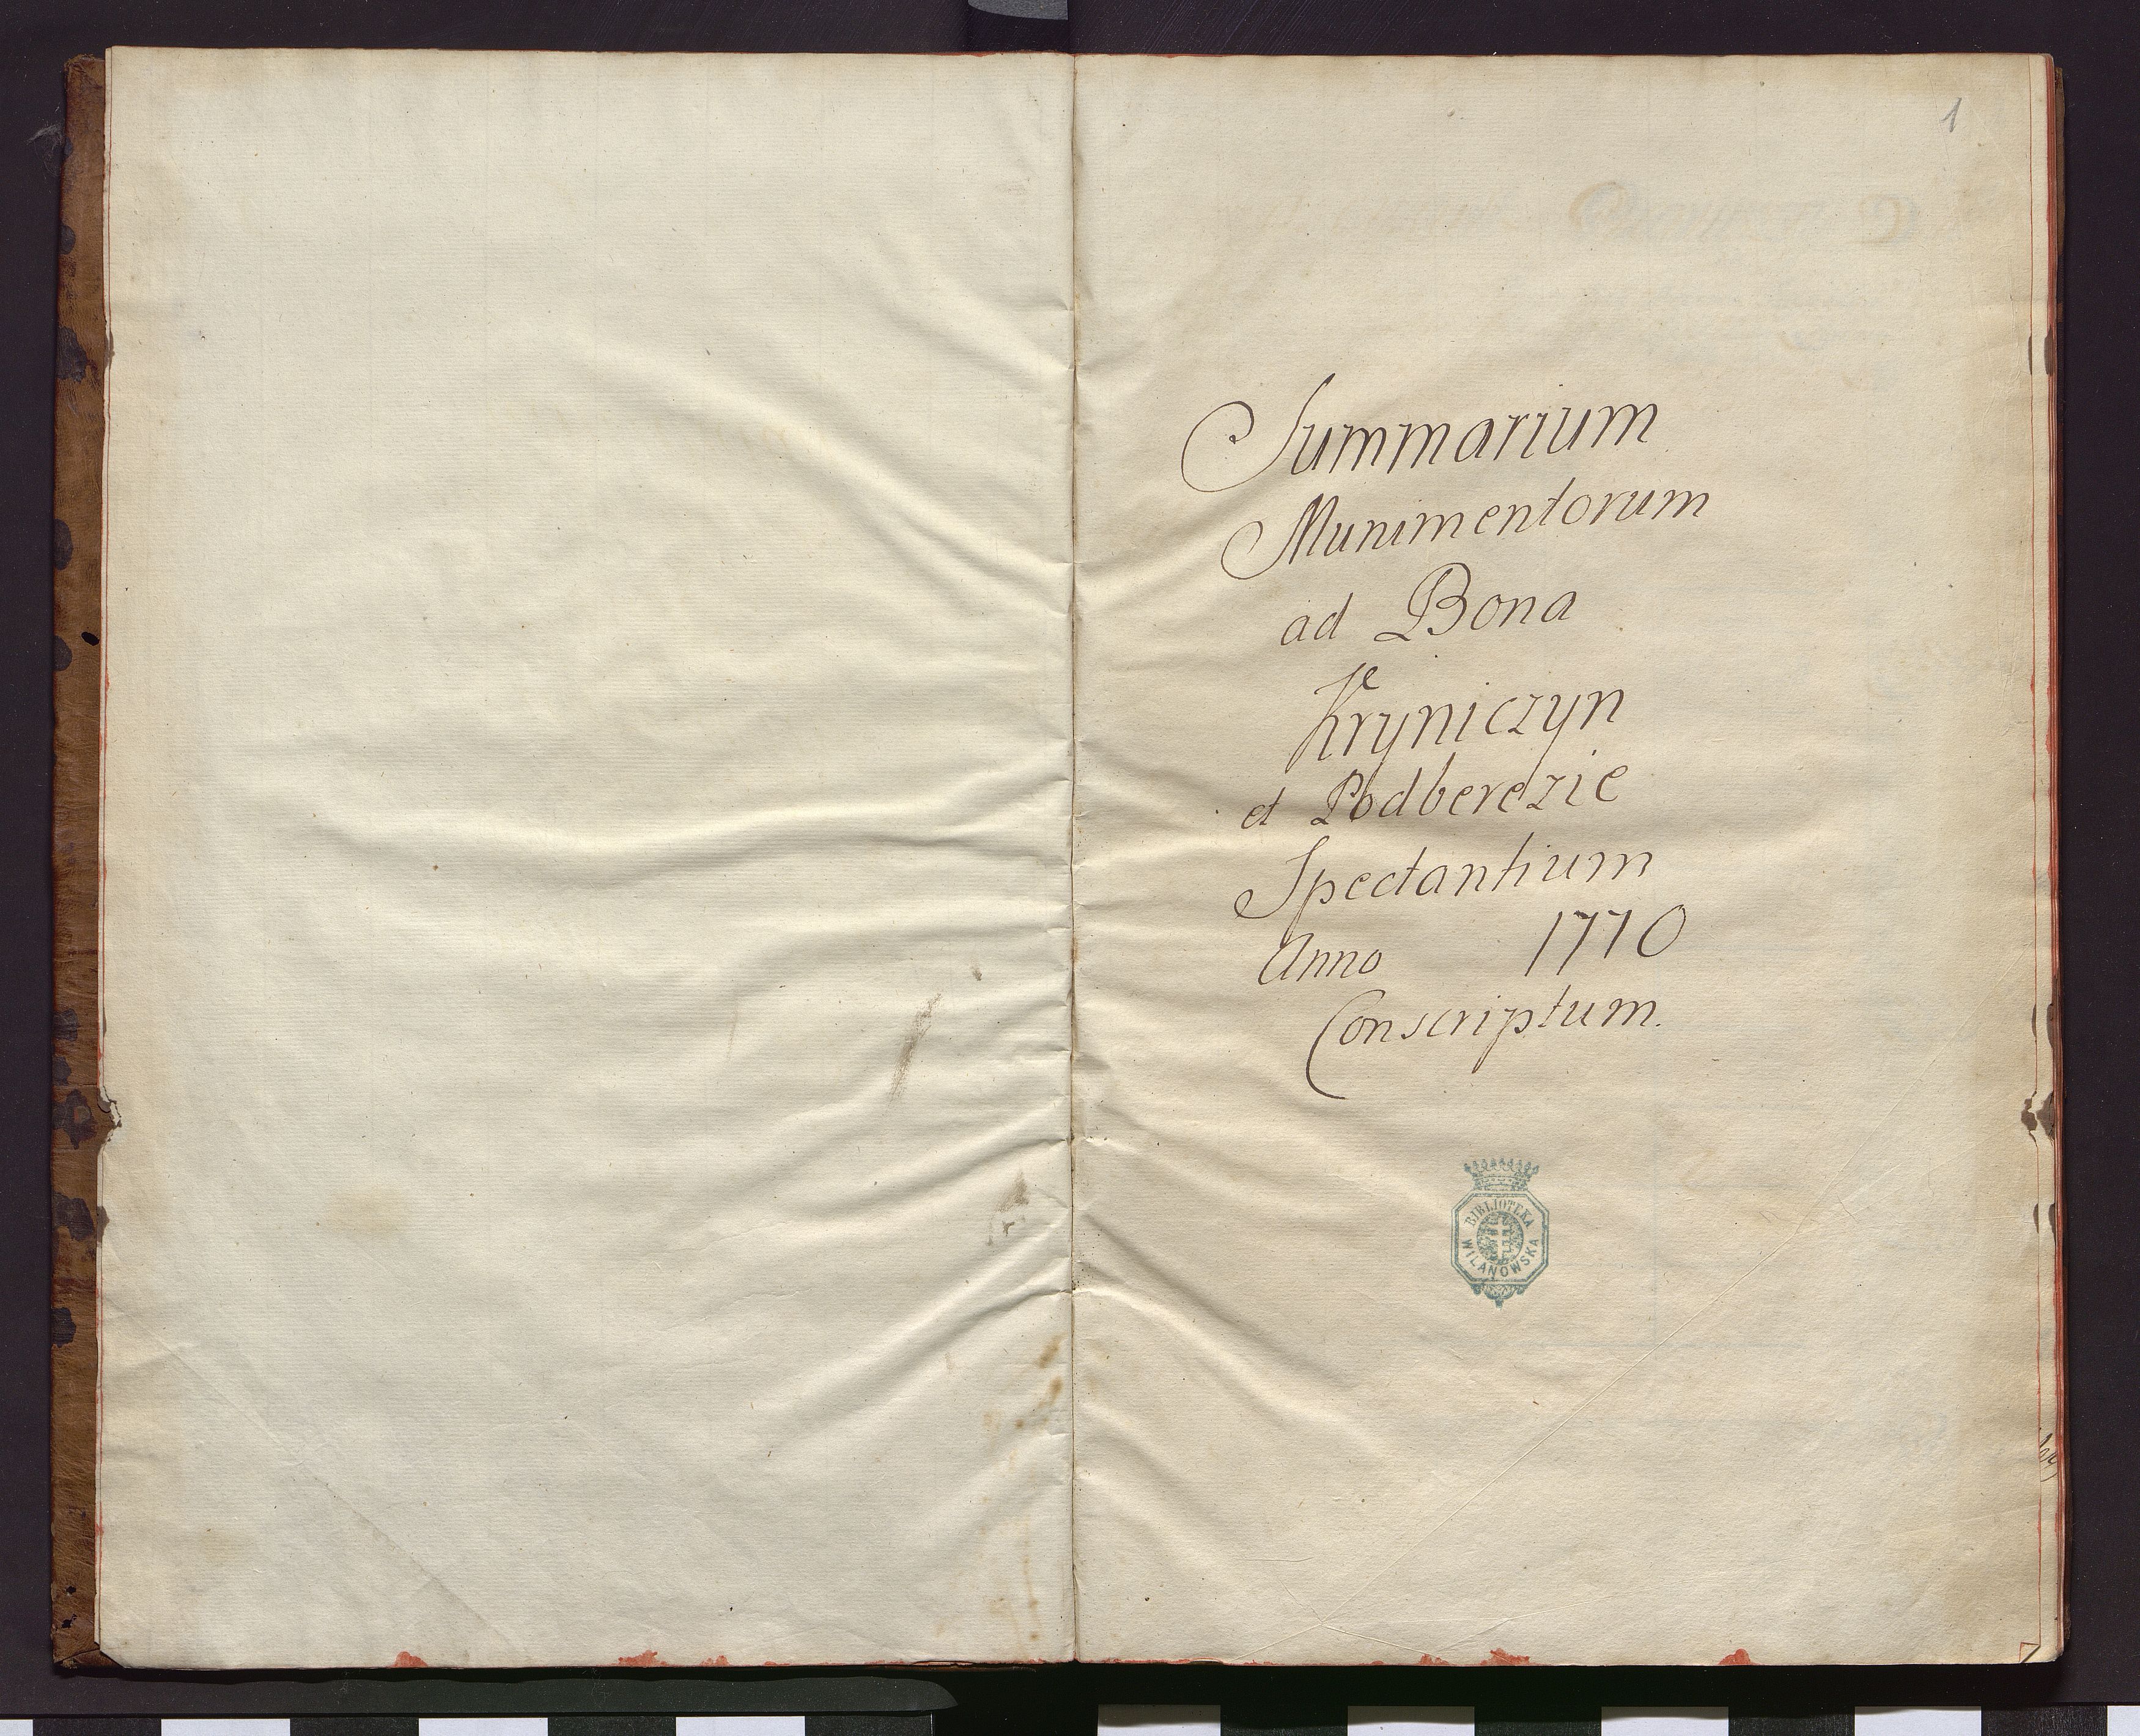 1
Summarium
Munimentorum
ad Bona
Kryniczyn
et Podberezie
Spectantium
Anno 1770
Conscriptum.
BIBLIOTEKA
WILANOWSKA